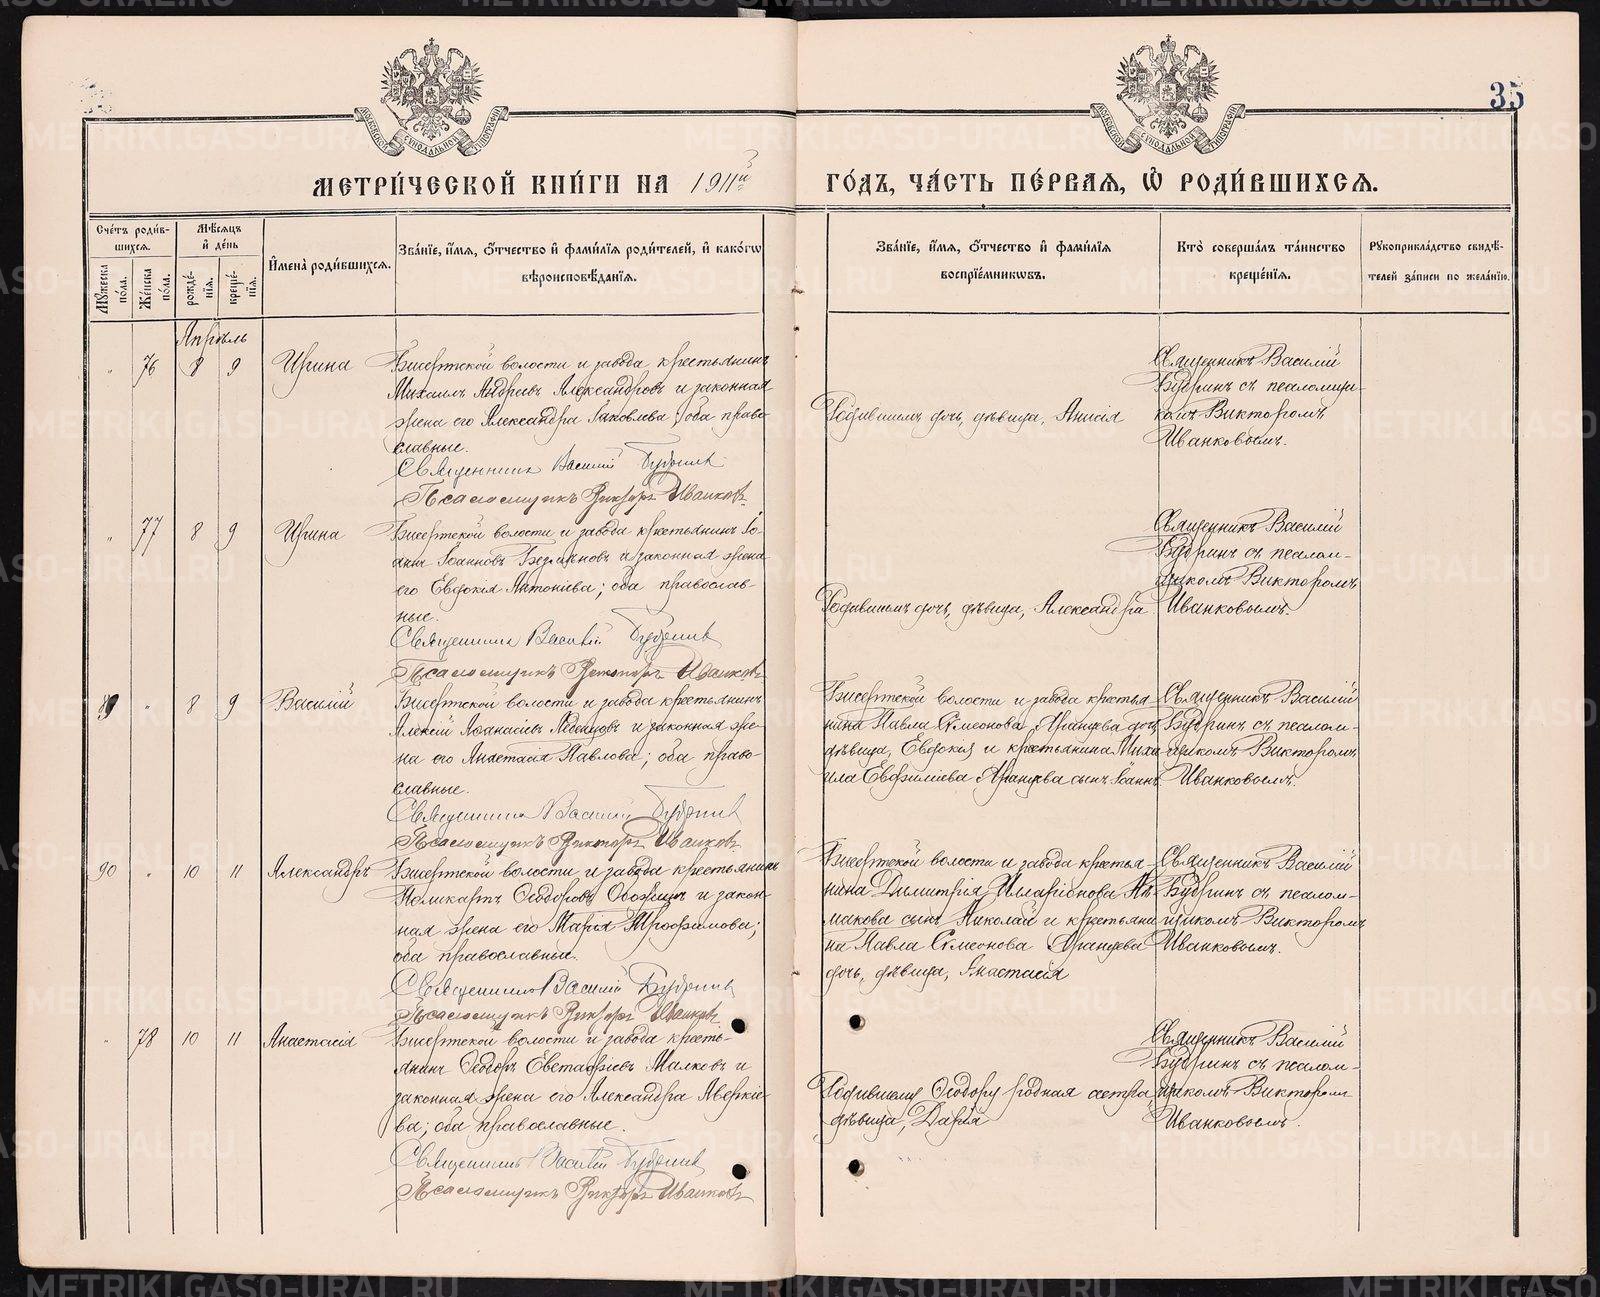 35
МЕТРИ́ЧЕСКОЙ КНИ́ГИ НА 1911й
ГО́ДЪ, ЧА́СТЬ ПЕ́РВАЯ, Ѡ҆ РОДИ́ВШИХСЯ.
Сче́тъ роди́вшихся.
Мꙋжеска по́ла.
Же́нска по́ла.
Мѣ́сяцъ и҆ де́нь
рожде́нїя.
креще́нїя.
И҆мена̀ роди́вшихся.
Зва́нїе, и҆́мя, ѻ҆́тчество и҆ фами́лїя роди́телей, и҆ како́гѡ
вѣроисповѣ́данїя.
Зва́нїе, и҆́мя, ѻ҆́тчество и҆ фами́лїя
воспрїе́мникѡвъ.
Кто̀ соверша́лъ та́инство
креще́нїя.
Рꙋкоприкла́дство свидѣ́-
телей за́писи по жела́нїю.
Апрѣль
" 76 8 9 Ирина
Бисертской волости и завода крестьянинъ
Михаилъ Андреевъ Александровъ и законная
жена его Александра Іаковлева; оба право-
славные.
Священникъ Василій Будринъ
Псаломщикъ Викторъ Иванковъ
Родившимъ дочь, дѣвица, Анисія
Священникъ Василій
Будринъ съ псаломщи-
комъ Викторомъ
Иванковымъ.
" 77 8 9 Ирина
Бисертской волости и завода крестьянинъ Іо-
аннъ Іоанновъ и законная жена
его Евдокія Антоніева; оба православ-
ные.
Священникъ Василій Будринъ
Псаломщикъ Викторъ Иванковъ
Родившимъ дочь, дѣвица, Александра
Священникъ Василій
Будринъ съ псалом-
щикомъ Викторомъ
Иванковымъ.
89 " 8 9 Василій
Бисертской волости и завода крестьянинъ
Алексій Аѳанасіевъ и законная же-
на его Анастасія Павлова; оба право-
славные.
Священникъ Василій Будринъ
Псаломщикъ Викторъ Иванковъ
Бисертской волости и завода крестья-
нина Павла Сѵмеонова Аранцева дочь,
дѣвица, Евдокія и крестьянина Миха-
ила Евѳиміева Аранцева сынъ Іоаннъ.
Священникъ Василій
Будринъ съ псалом-
щикомъ Викторомъ
Иванковымъ.
90 " 10 11 Александръ
Бисертской волости и завода крестьянинъ
Поликарпъ Ѳеодоровъ и закон-
ная жена его Марія Трофимова;
оба православные.
Священникъ Василій Будринъ
Псаломщикъ Викторъ Иванковъ
Бисертской волости и завода крестья-
нина Димитрія Илларіонова Ал-
макова сынъ Николай и крестьяни-
на Павла Сѵмеонова Аранцева
дочь, дѣвица, Анастасія
Священникъ Василій
Будринъ съ псалом-
щикомъ Викторомъ
Иванковымъ.
" 78 10 11 Анастасія
Бисертской волости и завода кресть-
янинъ Ѳеодоръ Евстафіевъ Малковъ и
законная жена его Александра Аверкіе-
ва; оба православные.
Священникъ Василій Будринъ
Псаломщикъ Викторъ Иванковъ
Родившему Ѳеодору родная сестра,
дѣвица, Дарія
Священникъ Василій
Будринъ съ псалом-
щикомъ Викторомъ
Иванковымъ.
METRIKI.GASO-URAL.RU